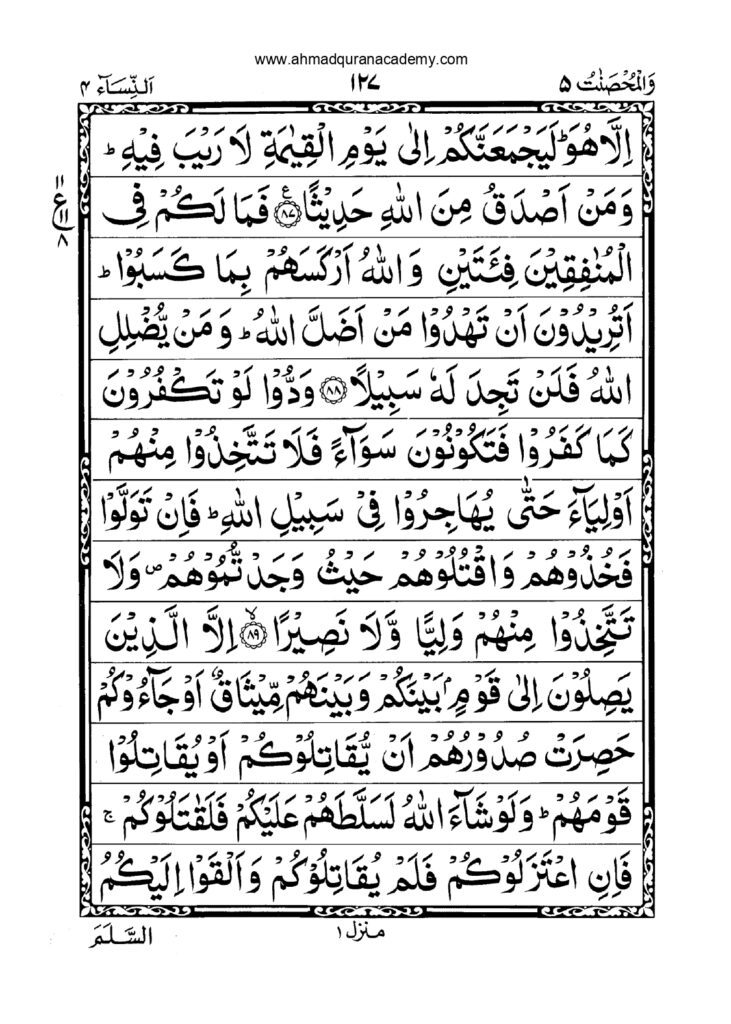 www.ahmadquranacademy.com
وَالْمُحْصَنٰتُ ۵
۱۲۷
اَلنِّسَآء ۴
اِلَّا هُوَ ؕ لَيَجْمَعَنَّكُمْ اِلٰى يَوْمِ الْقِيٰمَةِ لَا رَيْبَ فِيْهِ ؕ
وَمَنْ اَصْدَقُ مِنَ اللّٰهِ حَدِيْثًا ۧ ﴿۸۷﴾ فَمَا لَكُمْ فِى
الْمُنٰفِقِيْنَ فِئَتَيْنِ وَاللّٰهُ اَرْكَسَهُمْ بِمَا كَسَبُوْا ؕ
اَتُرِيْدُوْنَ اَنْ تَهْدُوْا مَنْ اَضَلَّ اللّٰهُ ؕ وَمَنْ يُّضْلِلِ
اللّٰهُ فَلَنْ تَجِدَ لَهٗ سَبِيْلًا ﴿۸۸﴾ وَدُّوْا لَوْ تَكْفُرُوْنَ
كَمَا كَفَرُوْا فَتَكُوْنُوْنَ سَوَآءً فَلَا تَتَّخِذُوْا مِنْهُمْ
اَوْلِيَآءَ حَتّٰى يُهَاجِرُوْا فِىْ سَبِيْلِ اللّٰهِ ؕ فَاِنْ تَوَلَّوْا
فَخُذُوْهُمْ وَاقْتُلُوْهُمْ حَيْثُ وَجَدْتُّمُوْهُمْ ۪ وَلَا
تَتَّخِذُوْا مِنْهُمْ وَلِيًّا وَّلَا نَصِيْرًا ۙ ﴿۸۹﴾ اِلَّا الَّذِيْنَ
يَصِلُوْنَ اِلٰى قَوْمٍۭ بَيْنَكُمْ وَبَيْنَهُمْ مِّيْثَاقٌ اَوْ جَآءُوْكُمْ
حَصِرَتْ صُدُوْرُهُمْ اَنْ يُّقَاتِلُوْكُمْ اَوْ يُقَاتِلُوْا
قَوْمَهُمْ ؕ وَلَوْ شَآءَ اللّٰهُ لَسَلَّطَهُمْ عَلَيْكُمْ فَلَقٰتَلُوْكُمْ ۚ
فَاِنِ اعْتَزَلُوْكُمْ فَلَمْ يُقَاتِلُوْكُمْ وَاَلْقَوْا اِلَيْكُمُ
۱۱
ع
۱۱
۸
منزل ۱
السَّلَمَ